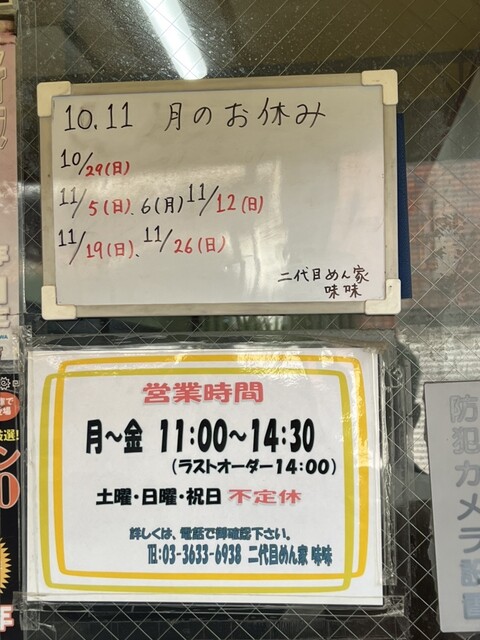 10.11 月のお休み
10/29(日)
11/5(日)、6(月) 11/12(日)
11/19(日)、11/26(日)
二代目めん家
味味
営業時間
月～金 11:00～14:30
(ラストオーダー14:00)
土曜・日曜・祝日 不定休
詳しくは、電話で御確認下さい。
℡:03-3633-6938 二代目めん家 味味
防犯カメラ設置